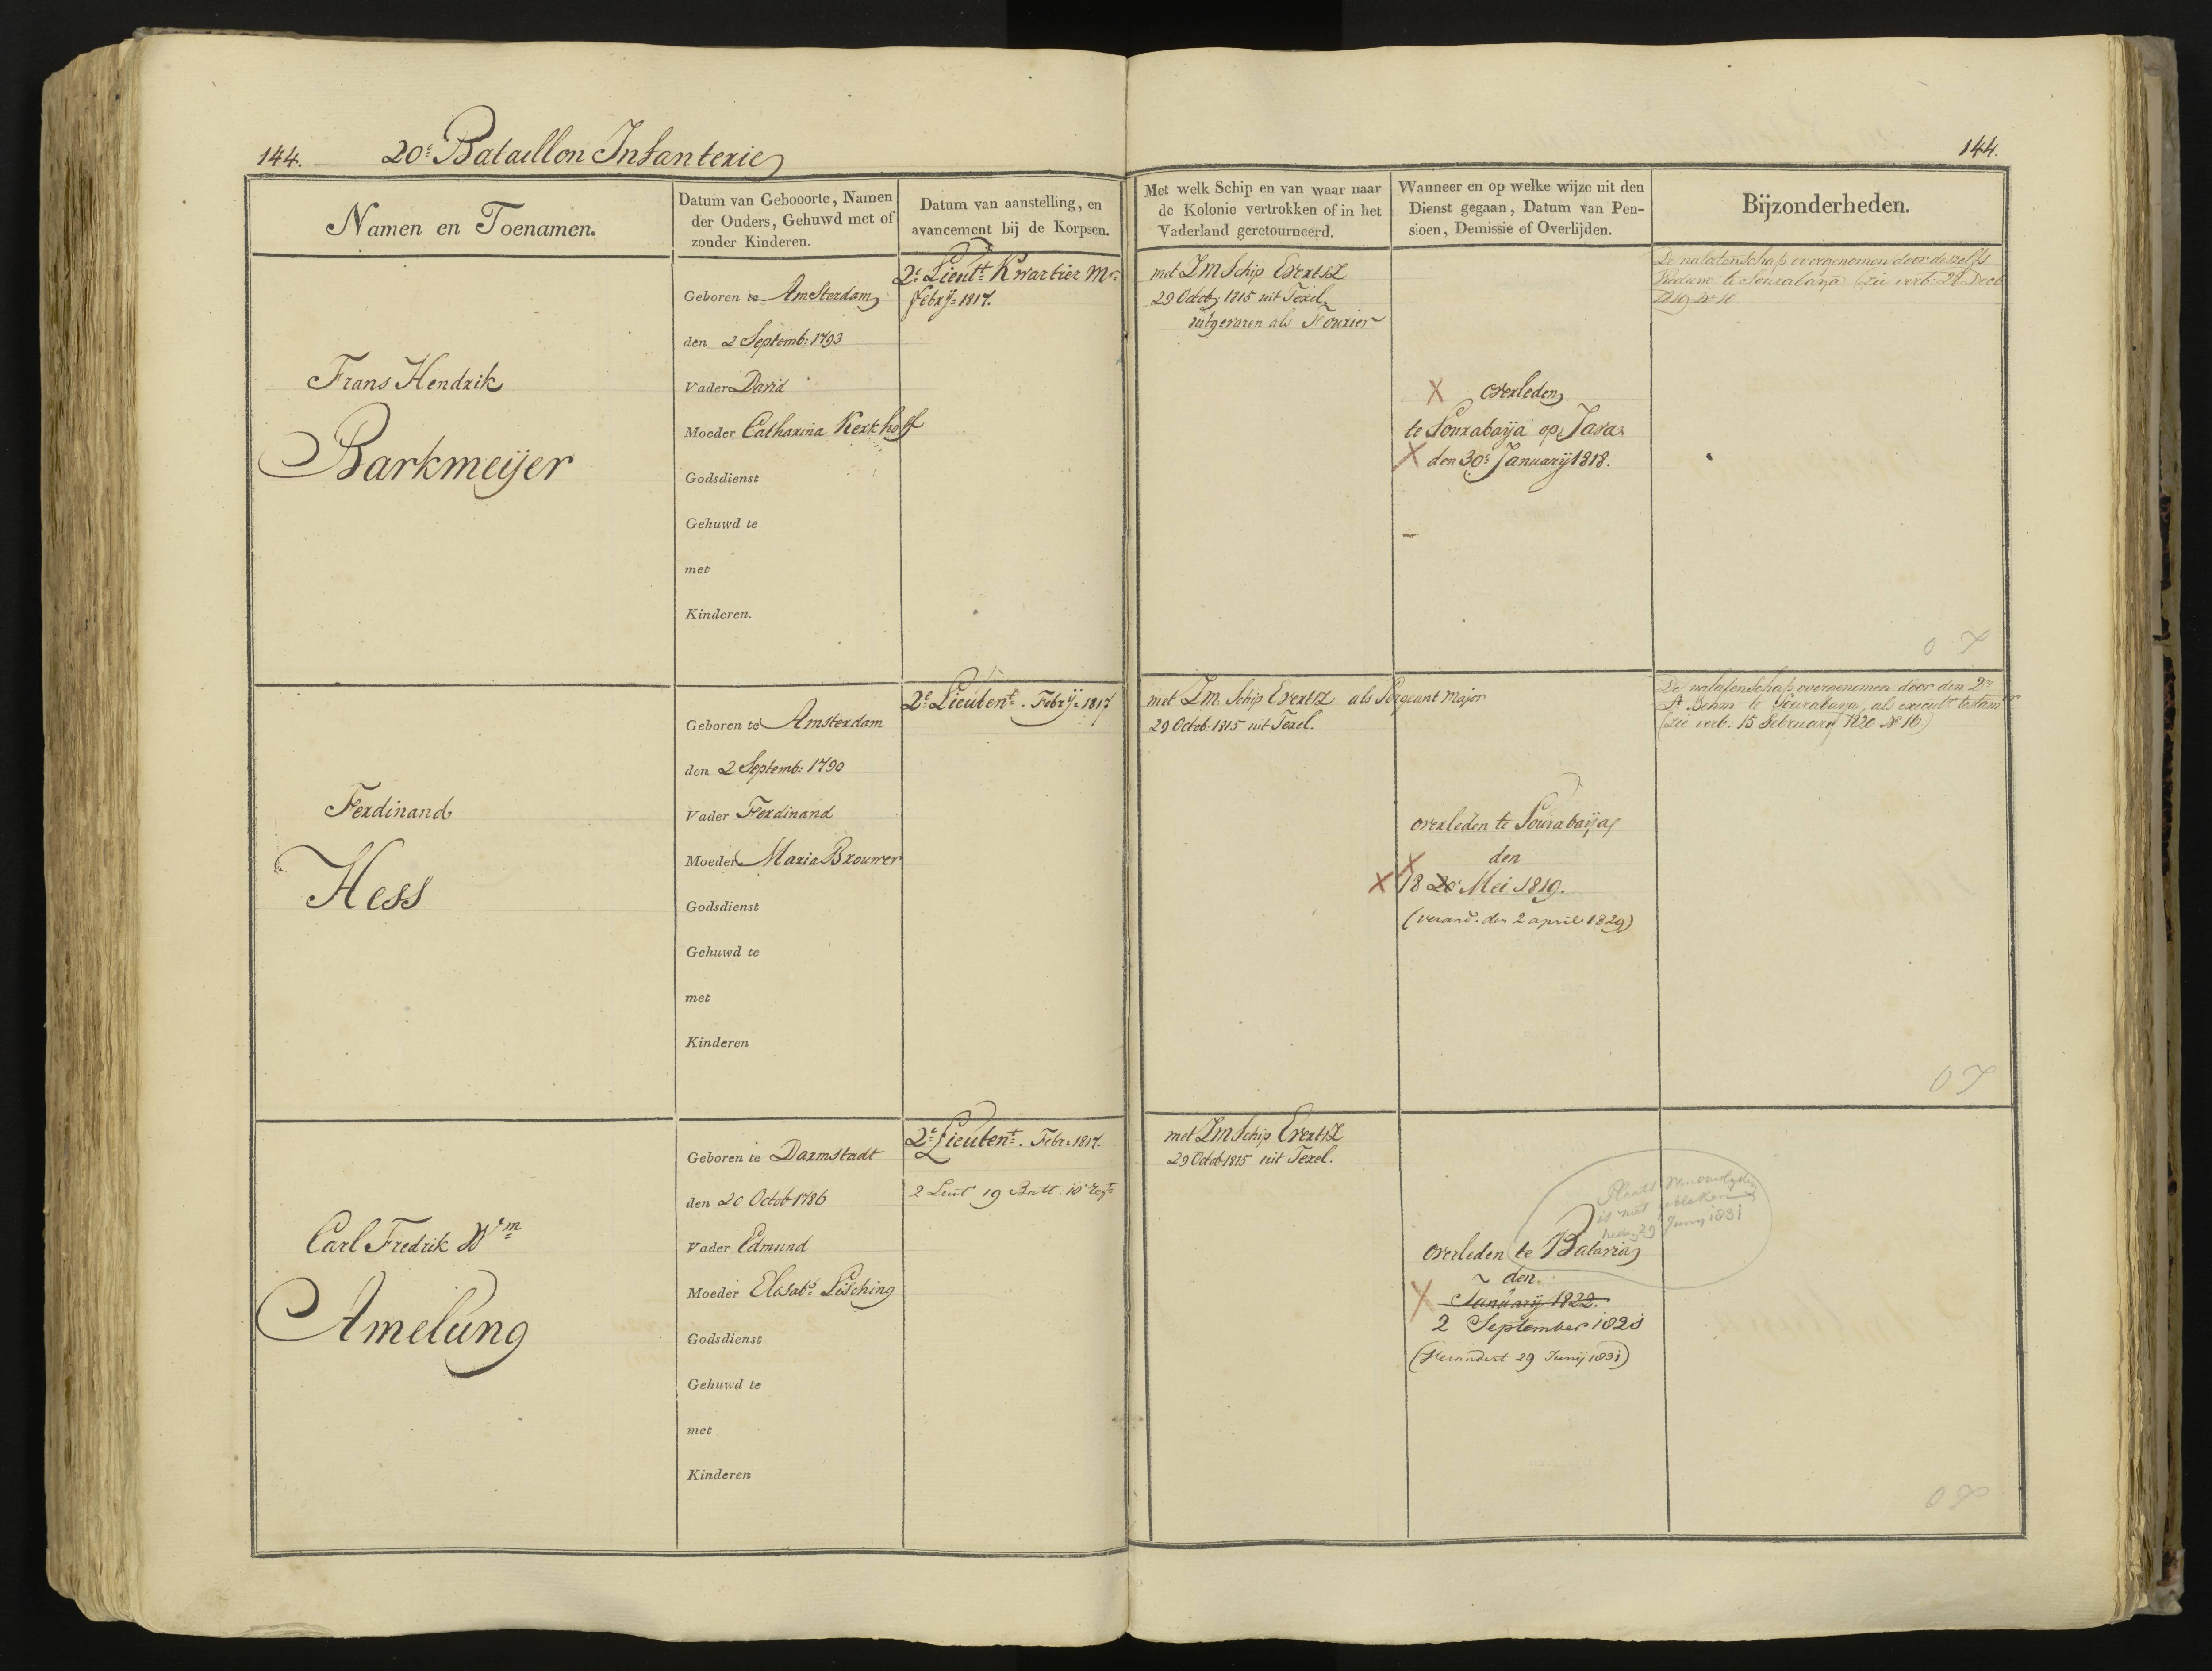 144.
20e Bataillon Infanterie
144.
Namen en Toenamen.
Datum van Gebooorte, Namen
der Ouders, Gehuwd met of
zonder Kinderen.
Datum van aanstelling, en
avancement bij de Korpsen.
Met welk Schip en van waar naar
de Kolonie vertrokken of in het
Vaderland geretourneerd.
Wanneer en op welke wijze uit den
Dienst gegaan, Datum van Pen-
sioen, Demissie of Overlijden.
Bijzonderheden.
Frans Hendrik
Barkmeijer
Geboren te Amsterdam
den 2 Septemb: 1793
Vader David
Moeder Catharina Kerkhoff
Godsdienst
Gehuwd te
met
Kinderen.
2e Lieutt Kwartier Mr
Febrij 1817.
met Z M Schip Evertsz
29 Octob 1815 uit Texel
uitgevaren als Fourier
X overleden
te Sourabaija op Java
X den 30e Januarij 1818.
De nalatenschap overgenomen door deszelfs
Weduwe te Sourabaya (zie verb: 28 Decb
O
Ferdinand
Hess
Geboren te Amsterdam
den 2 Septemb: 1790
Vader Ferdinand
Moeder Maria Brouwer
Godsdienst
Gehuwd te
met
Kinderen
2e Lieutent. Febrij 1817
met Z M. Schip Evertsz als Sergeant Major
29 Octob. 1815 uit Texel.
overleden te Sourabaija
den
X X 18 20 Mei 1819.
(verand. den 2 april 1829)
De nalatenschap overgenomen door den 2n
Lt Behm te Sourabaya, als execut testam
(zie verb: 15 February 1820 No 16)
O
Carl Fredrik Wm
Amelung
Geboren te Darmstadt
den 20 Octob 1786
Vader Edmund
Moeder Elisabs Lisching
Godsdienst
Gehuwd te
met
Kinderen
2e Lieutent. Febr. 1817.
2 Leut 19 Batt. 10 Regt
met Z M Schip Evertsz
29 Octob 1815 uit Texel.
Plaats
is niet gebleken
heden 29 Juny 1831
overleden te Batavia
den
X Januarij 1822.
2 September 1821
(Verandert 29 Junij 1831)
O